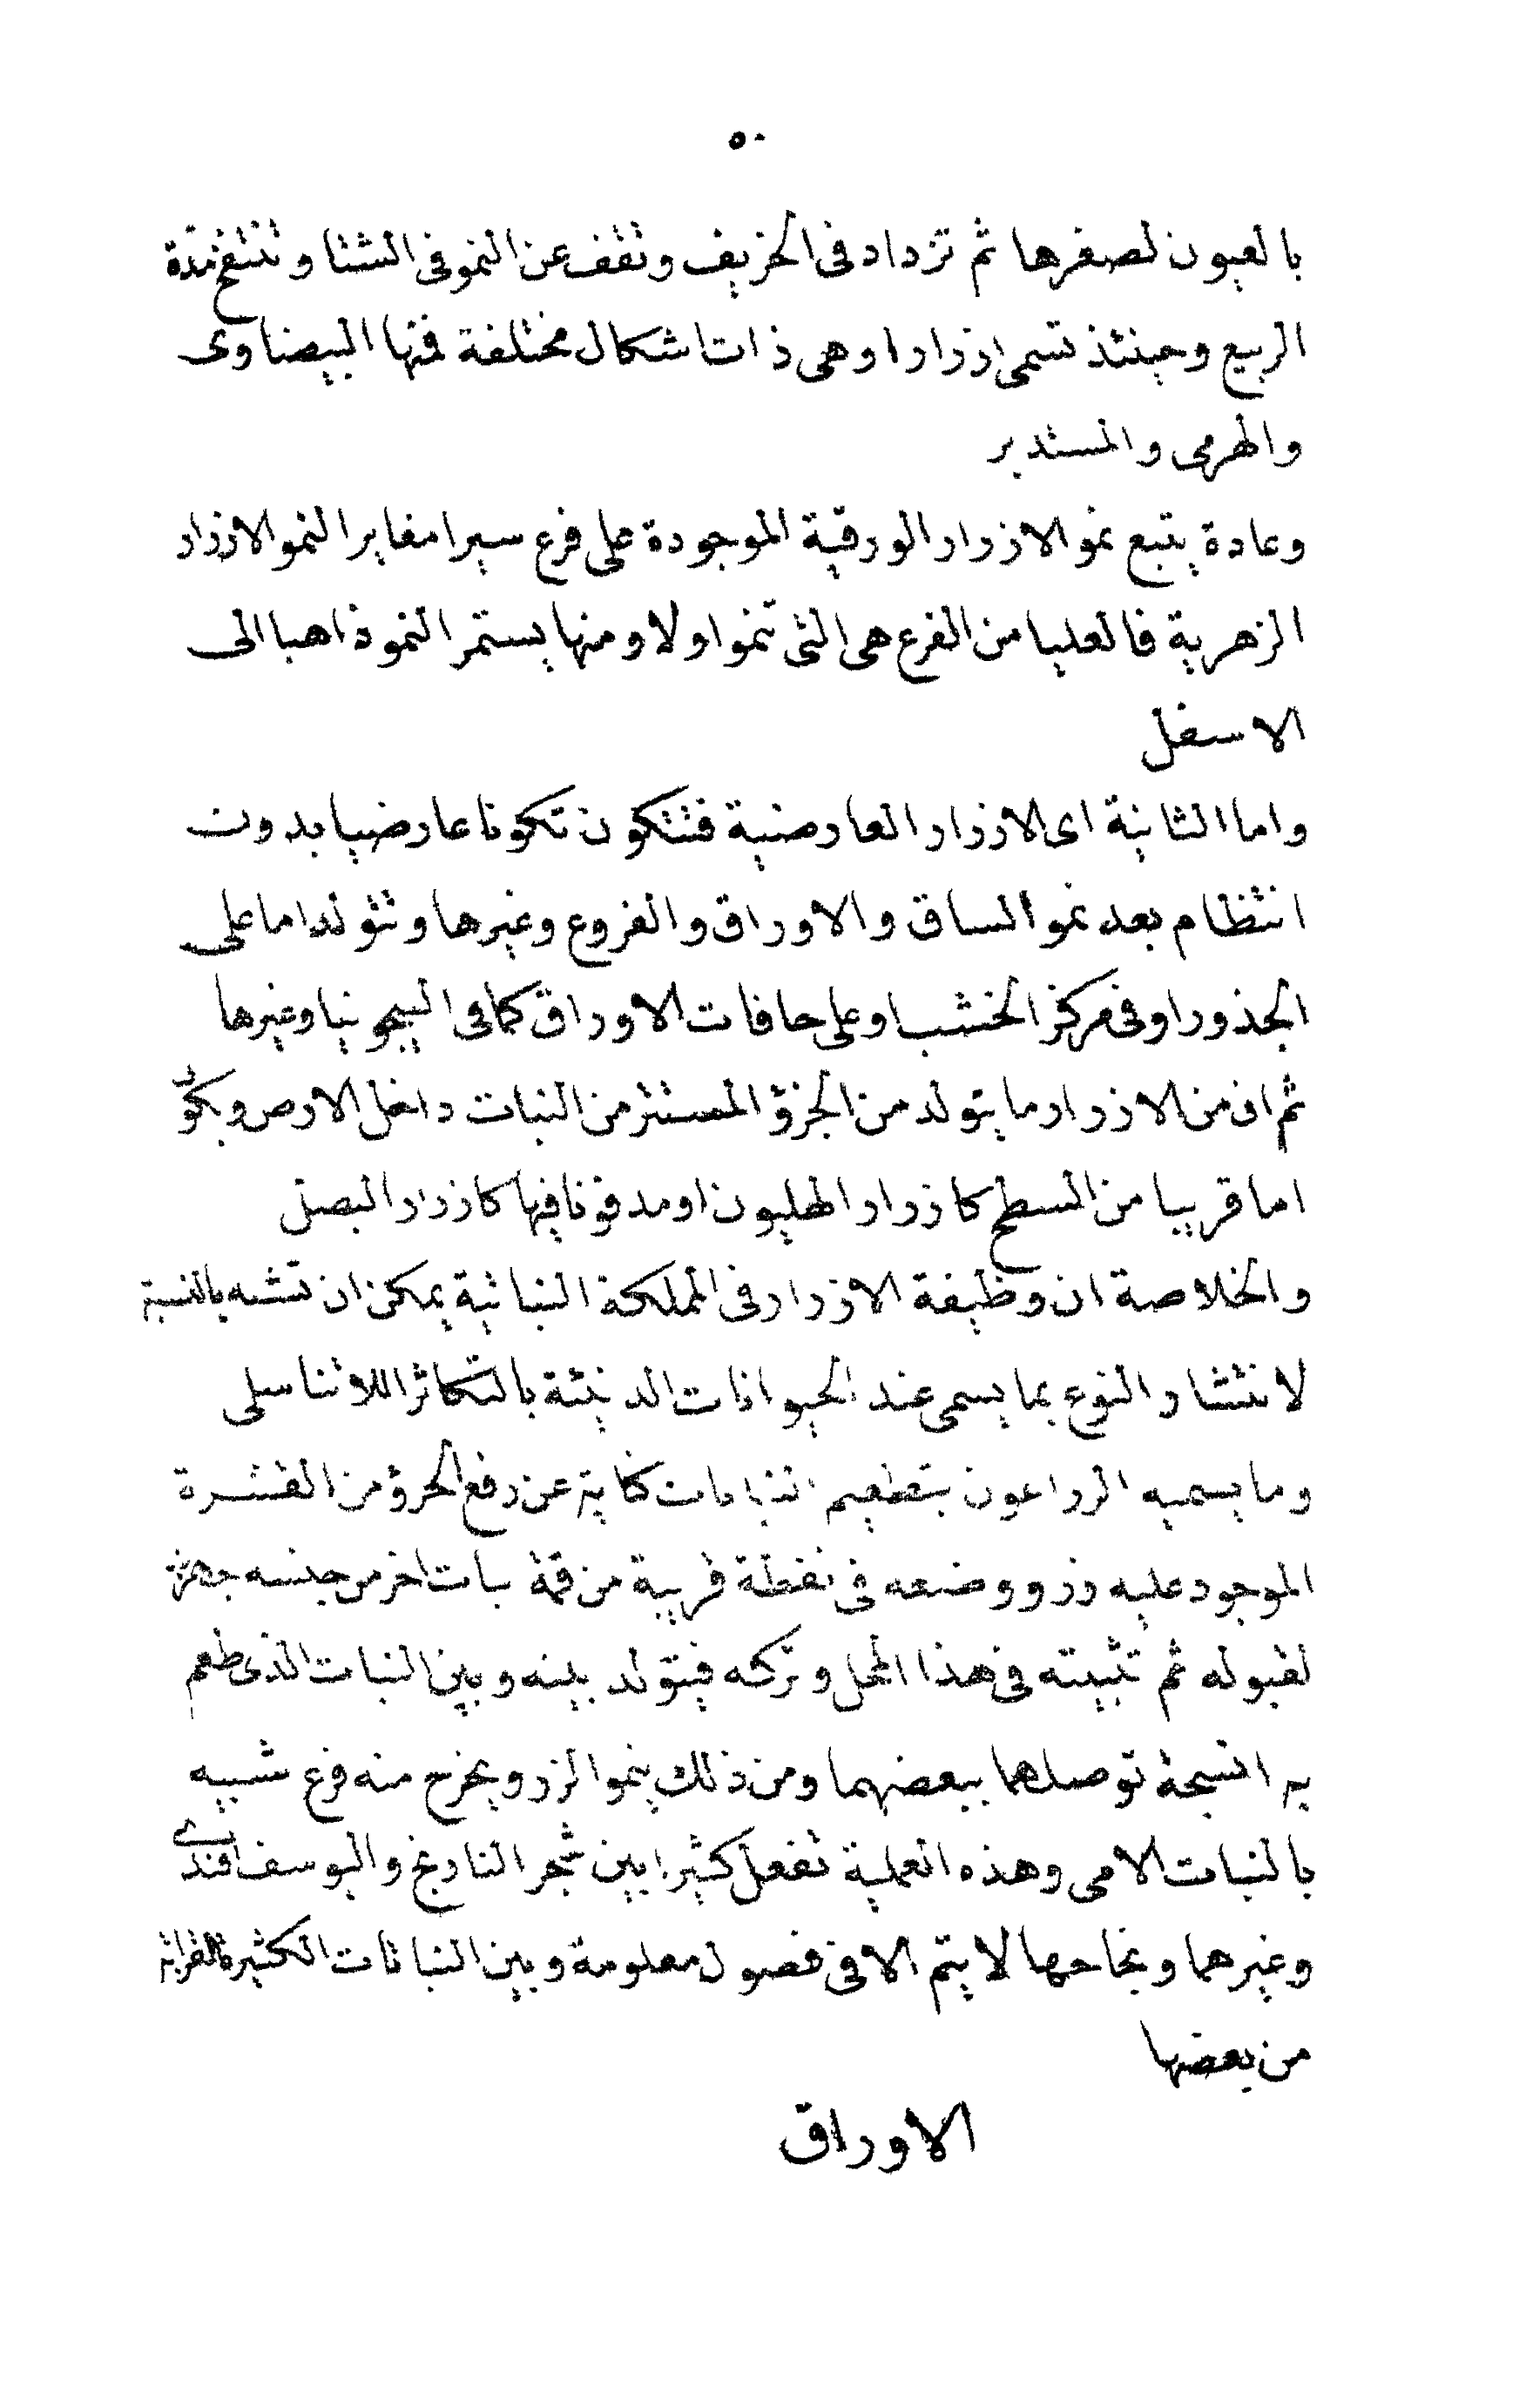 ٥٠
بالعيون لصغرها ثم تزداد فى الخريف وتقف عن النمو فى الشتا وتنتفخ مدة
الربيع وحينئذ تسمى ازرارا وهى ذات اشكال مختلفة فمنها البيضاوى
والهرمى والمستدير
وعادة يتبع نمو الازرار الورقية الموجودة على فرع سيرا مغايرا لنمو الازرار
الزهرية فالعليا من الفرع هى التى تنموا ولا ومنها يستمر النمو ذاهبا الى
الاسفل
واما الثانية اى الازرار العارضية فتتكون تكونا عارضيا بدون
انتظام بعد نمو الساق والاوراق والفروع وغيرها وتتولد اما على
الجذور او فى مركز الخشب او على حافات الاوراق كما فى البيجونيا وغيرها
ثم ان من الازرار ما يتولد من الجزؤ المستتر من النبات داخل الارض ويكون
اما قريبا من السطح كازرار الهليون او مدفونا فيها كازرار البصل
والخلاصة ان وظيفة الازرار فى المملكة النباتية يمكن ان تشبه بالنسبة
لانتشار النوع بما يسمى عند الحيوانات الدنيئة بالتكاثر اللاتناسلى
وما يسميه الزراعون بتطعيم النباتات كناية عن رفع الجزؤ من القشرة
الموجود عليه زر ووضعه فى نقطة قريبة من قمة نبات اخر من جنسه جهزت
لقبوله ثم تثبيته فى هذا المحل وتركه فيتولد بينه وبين النبات الذى طعم
به انسجة توصلهما ببعضهما ومن ذلك ينمو الزر ويخرج منه فرع شبيه
بالنبات الامى وهذه العملية تفعل كثيرا بين شجر النارنج واليوسف افندى
وغيرهما ونجاحها لا يتم الا فى فصول معلومة وبين النباتات الكثيرة القرابة
من بعضها
الاوراق